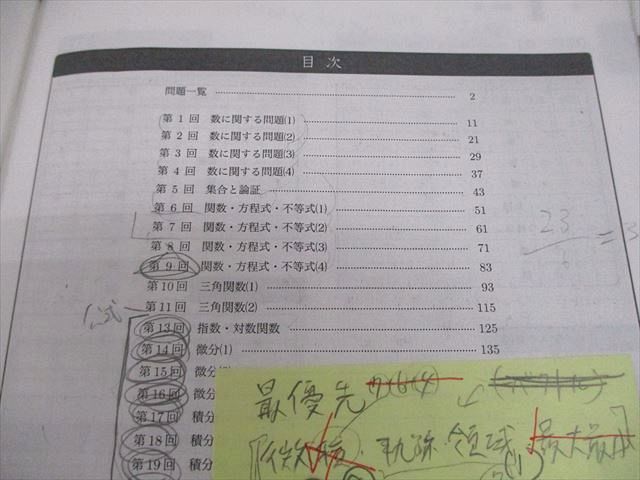 目 次
問題一覧 2
第 1 回 数に関する問題(1) 11
第 2 回 数に関する問題(2) 21
第 3 回 数に関する問題(3) 29
第 4 回 数に関する問題(4) 37
第 5 回 集合と論証 43
第 6 回 関数・方程式・不等式(1) 51
第 7 回 関数・方程式・不等式(2) 61
第 8 回 関数・方程式・不等式(3) 71
第 9 回 関数・方程式・不等式(4) 83
第10回 三角関数(1) 93
第11回 三角関数(2) 115
第13回 指数・対数関数 125
第14回 微分(1) 135
第15回 微分
第16回 微分
第17回 積分
第18回 積分
第19回 積分
公式
23
最優先
軌跡・領域